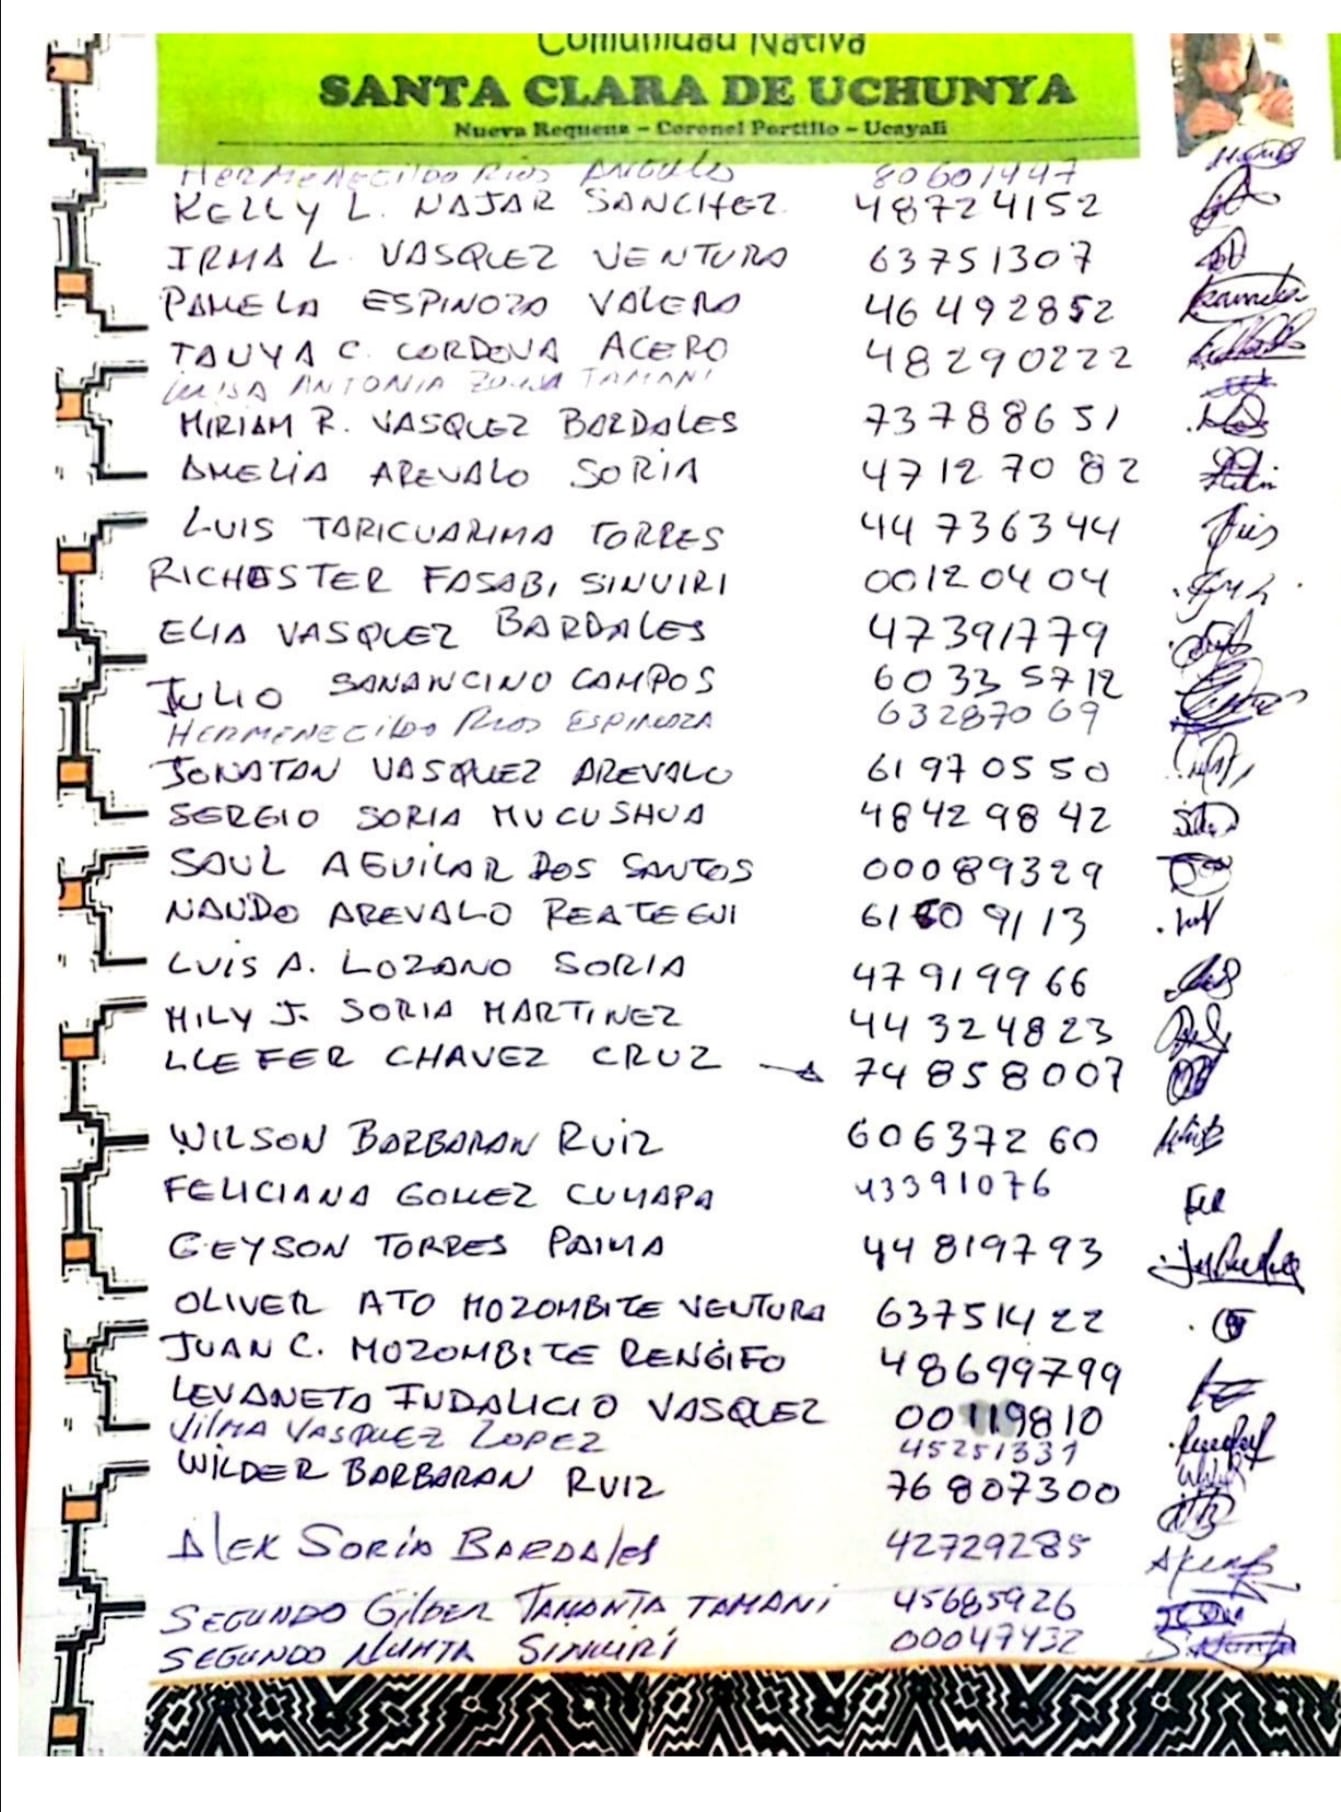 Comunidad Nativa
SANTA CLARA DE UCHUNYA
Nueva Requena - Coronel Portillo - Ucayali
HERMENECILDO RIOS ANGULO 80601447
KELLY L. NAJAR SANCHEZ. 48724152
IRMA L. VASQUEZ VENTURA 63751307
PAMELA ESPINOZA VALERA 46492852
TANYA C. CORDOVA ACERO 48290222
LUISA ANTONIA TAMANI
MIRIAM R. VASQUEZ BARDALES 73788651
AMELIA AREVALO SORIA 47127082
LUIS TARICUARIMA TORRES 44736344
RICHASTER FASABI SINUIRI 00120404
ELIA VASQUEZ BARDALES 47391779
JULIO SANANCINO CAMPOS 60335712
HERMENECILDO RIOS ESPINOZA 63287069
JONATAN VASQUEZ AREVALO 61970550
SERGIO SORIA MUCUSHUA 48429842
SAUL AGUILAR DOS SANTOS 00089329
NAUDO AREVALO REATEGUI 61609113
LUIS A. LOZANO SORIA 47919966
MILY J. SORIA MARTINEZ 44324823
LLEFER CHAVEZ CRUZ 74858007
WILSON BARBARAN RUIZ 60637260
FELICIANA GOMEZ CUMAPA 43391076
GEYSON TORRES PAIMA 44819793
OLIVER ATO MOZOMBITE VENTURA 63751422
JUAN C. MOZOMBITE RENGIFO 48699799
LEVANETO FUDALICIO VASQUEZ 00119810
VILMA VASQUEZ LOPEZ 45251331
WILDER BARBARAN RUIZ 76807300
ALEX SORIA BARDALES 42729285
SEGUNDO GILDER TAMANTA TAMANI 45685926
SEGUNDO NUMTA SINUIRI 00047432